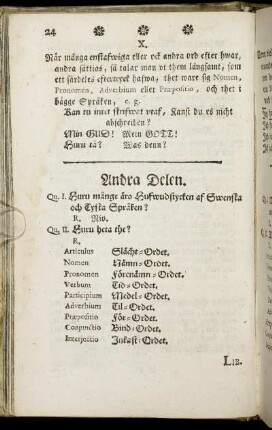 24
X.
När många enstafwiga eller ock andra ord efter hwar,
andra sättias, så talar man ut them långsamt, som
ett särdeles eftertryck hafwa, thet ware sig Nomen,
Pronomen, Adverbium eller Præpositio, och thet i
bägge Språken, e. g.
Kan tu intet skrifwet uraf, Kanst du es nicht
abschreiben?
Min GUD! Mein GOTT!
Huru tå? Was denn?
Andra Delen.
Qu. I. Huru månge äro Hufwudstycken af Swenska
och Tyska Språken?
R. Nio.
Qu. II. Huru heta the?
R.
Articulus Slächt-Ordet.
Nomen Nämn-Ordet.
Pronomen Förenämn-Ordet.
Verbum Tid-Ordet.
Participium Medel-Ordet.
Adverbium Til-Ordet.
Præpositio För-Ordet.
Conjunctio Bind-Ordet.
Interjectio Inkast-Ordet.
LIB.